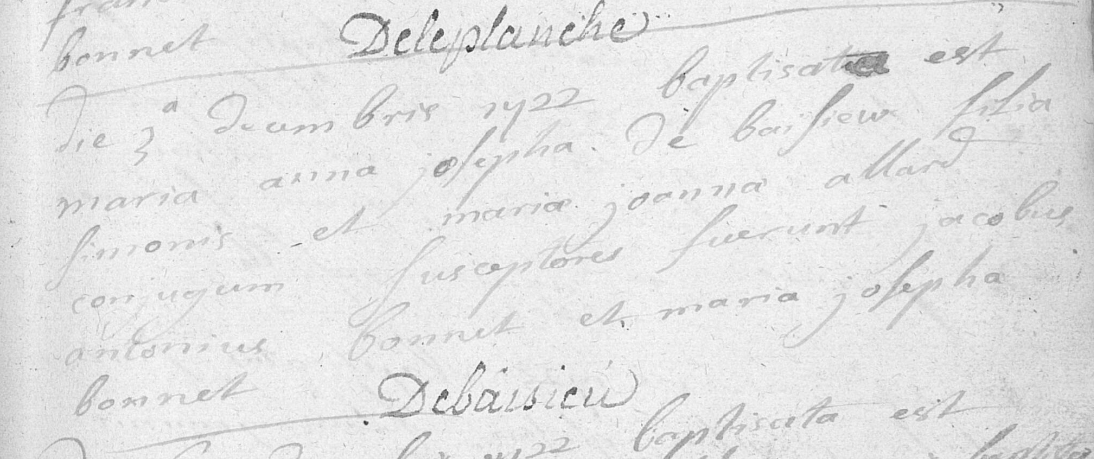 bonnet Deleplanche
die 3a decembris 1722 baptisata est
maria anna josepha de baisieu filia
simonis et mariæ joanna allard
conjugum susceptores fuerunt jacobus
antonius bonnet et maria josepha
bonnet Debaisieu
1722 baptisata est